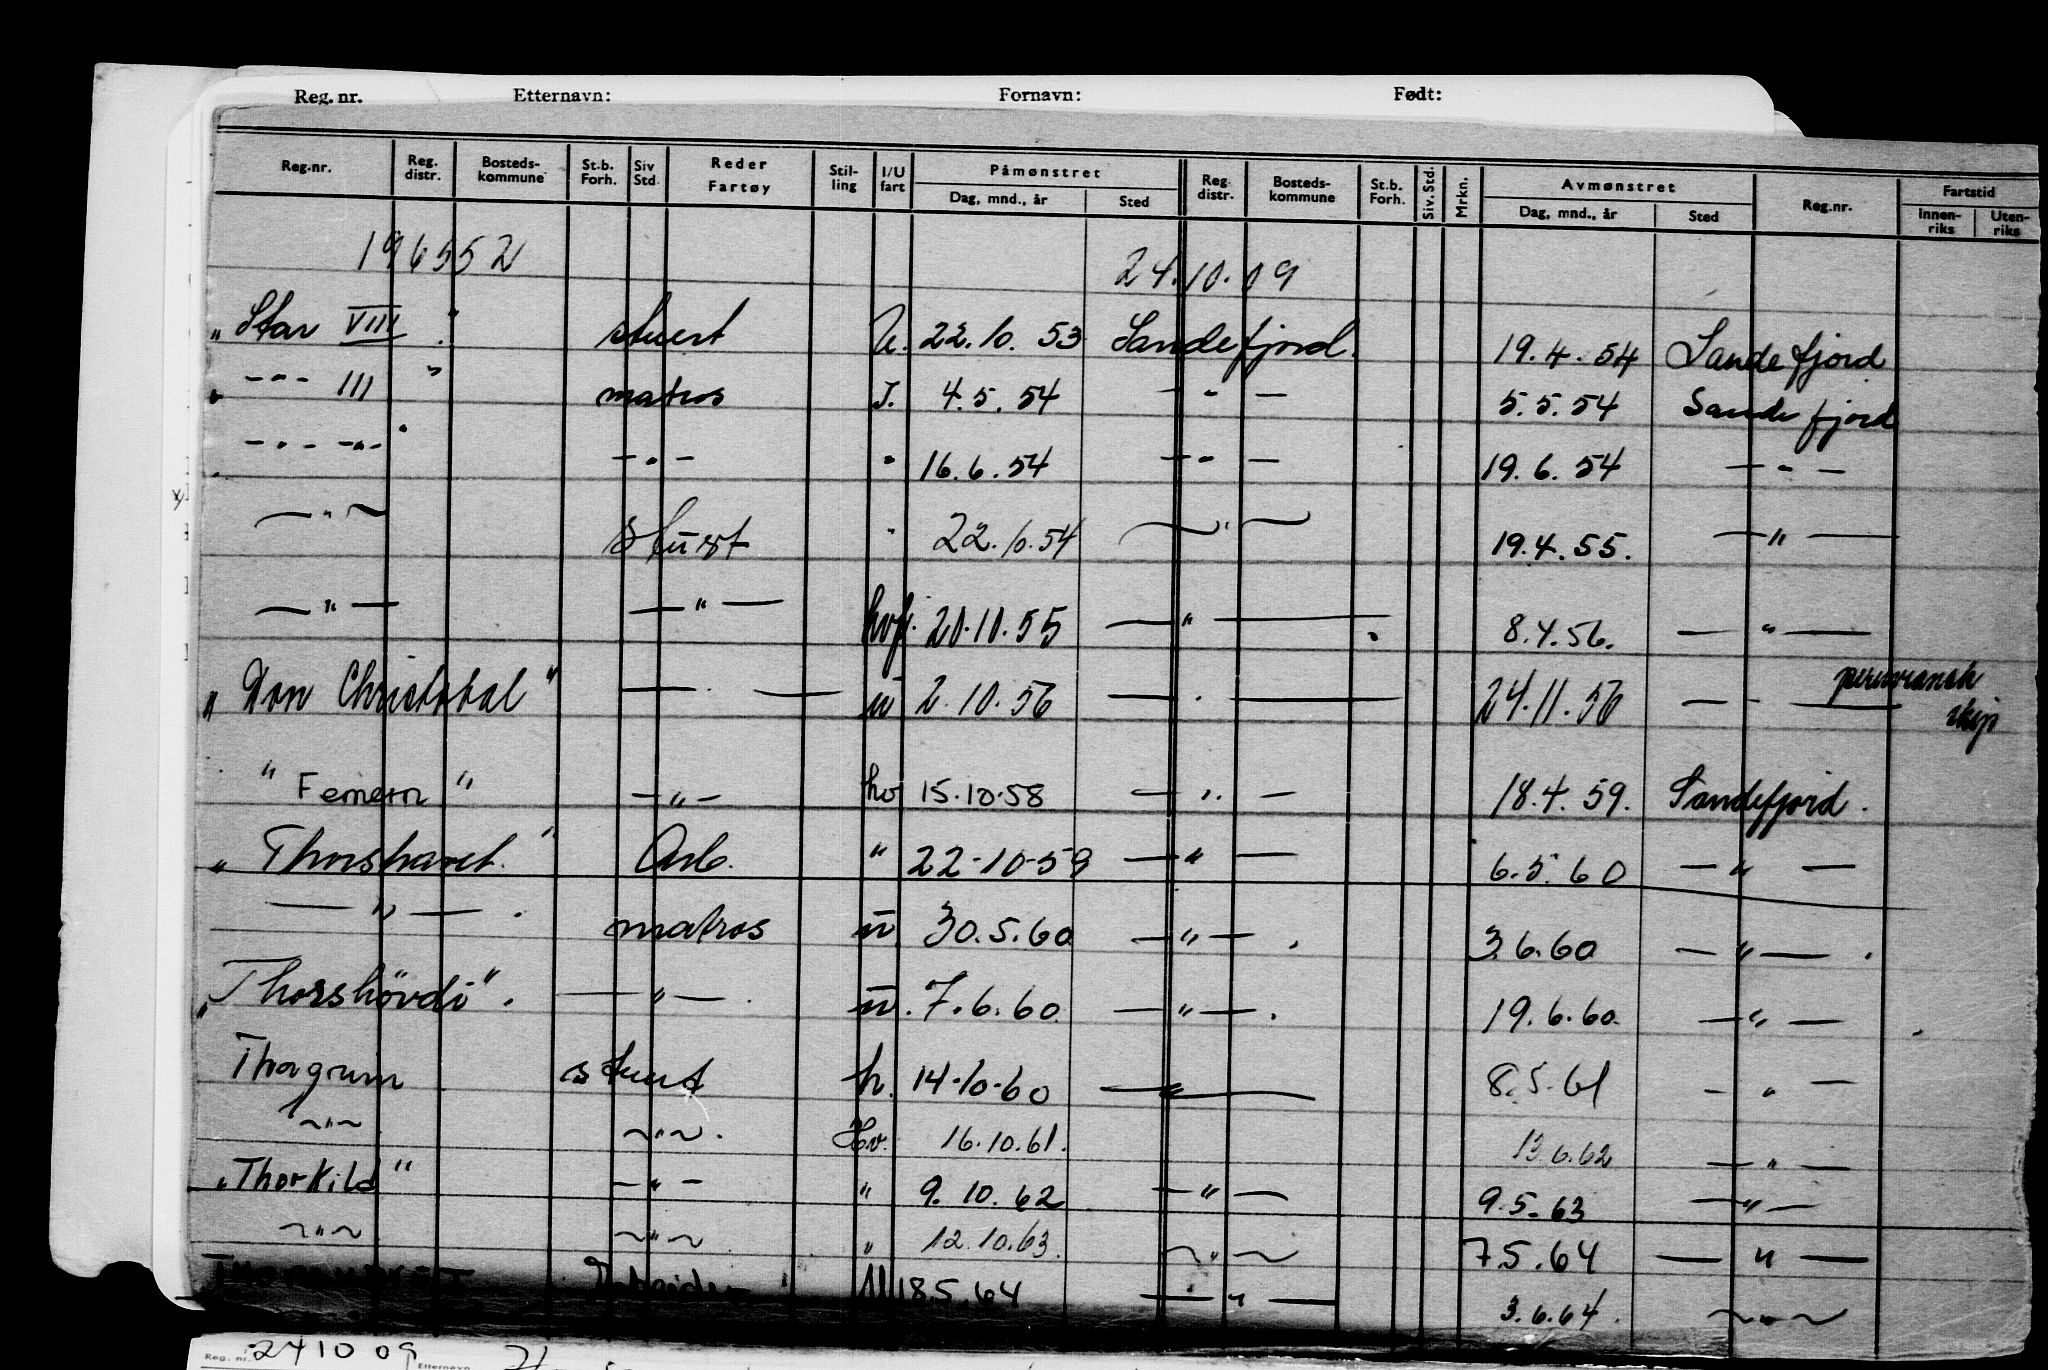 Reg. nr. Etternavn: Fornavn: Født:
Reg.nr. Reg. distr. Bosteds-kommune St.b. Forh. Siv Std. Reder Fartøy Stil-ling I/U fart Påmønstret Dag, mnd., år Sted Reg. distr. Bosteds-kommune St.b. Forh. Siv. Std. Mrkn. Avmønstret Dag, mnd., år Sted Reg.nr. Fartstid Innen-riks Uten-riks
196552 24.10.09
"Star VIII" stuert U. 22.10.53 Sandefjord. 19.4.54 Sandefjord
" -"- III " matros I. 4.5.54 - " - 5.5.54 Sandefjord
-"- -"- " -"- " 16.6.54 -"- 19.6.54 -"-
-"- Stuert " 22.10.54 -"- 19.4.55. -"-
-"- -"- hvf. 20.10.55 -"- 8.4.56. -"-
"Don Christobal" -"- u 2.10.56 -"- 24.11.56 -"- peruviansk skip
"Femern" -"- hv 15.10.58 -"- 18.4.59. Sandefjord.
"Thorshavet." Arb. " 22-10-59 -"- 6.5.60 -"-
-"-. matros u. 30.5.60 -"-. 3.6.60 -"-.
"Thorshövdi". -"-. u. 7.6.60. -"-. 19.6.60. -"-.
Thorgrim stuert h. 14-10-60 -"- 8.5.61 -"-
~"~ ~"~. Hv. 16.10.61. 13.6.62 -"-
"Thorkild" -"- " 9.10.62 -"- 9.5.63 -"-
~"~ ~"~ " 12.10.63. ~"~ 7.5.64 -"-
U 18.5.64 -"- 3.6.64. ~"~
Reg. nr. 241009 Etternavn